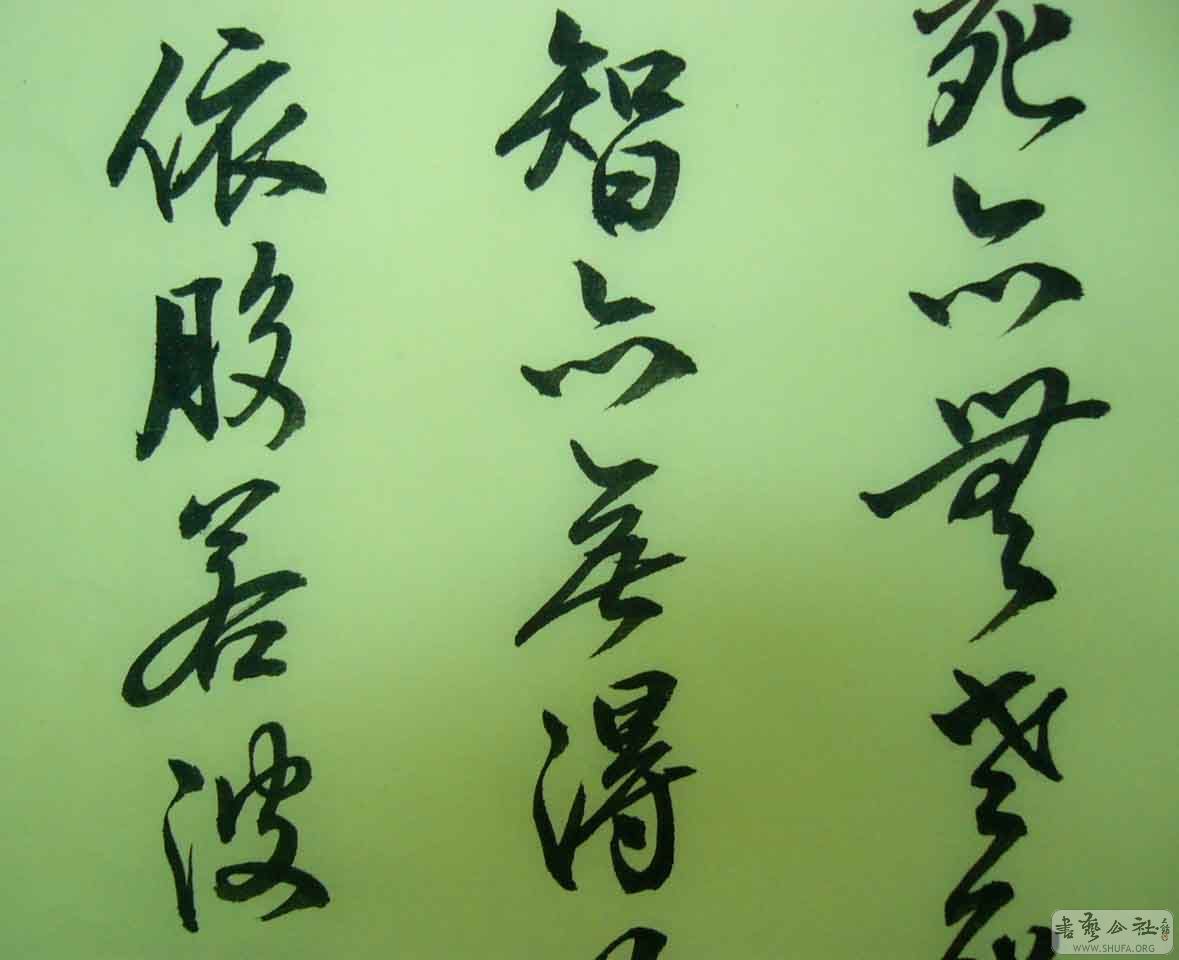 死亦無老
智亦無得
依般若波
書藝公社
WWW.SHUFA.ORG